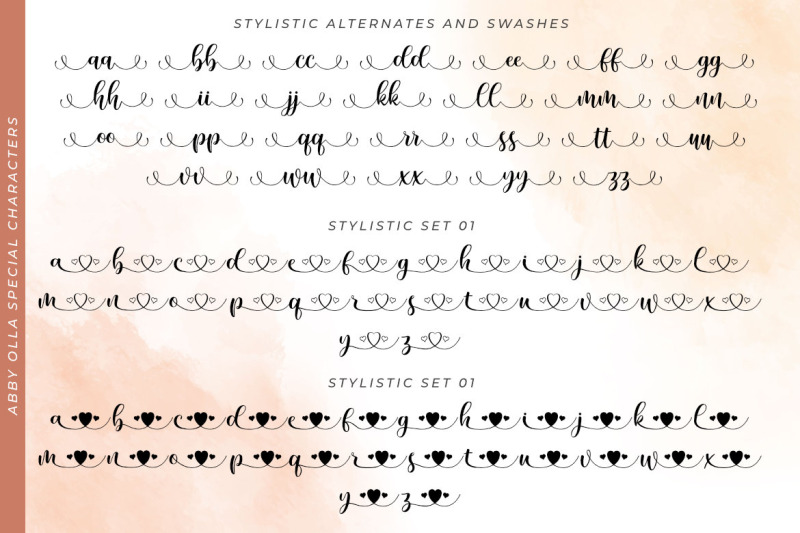 ABBY OLLA SPECIAL CHARACTERS
STYLISTIC ALTERNATES AND SWASHES
aa bb cc dd ee ff gg
hh ii jj kk ll mm nn
oo pp qq rr ss tt uu
vv ww xx yy zz
STYLISTIC SET 01
a b c d e f g h i j k l
m n o p q r s t u v w x
y z
STYLISTIC SET 01
a b c d e f g h i j k l
m n o p q r s t u v w x
y z